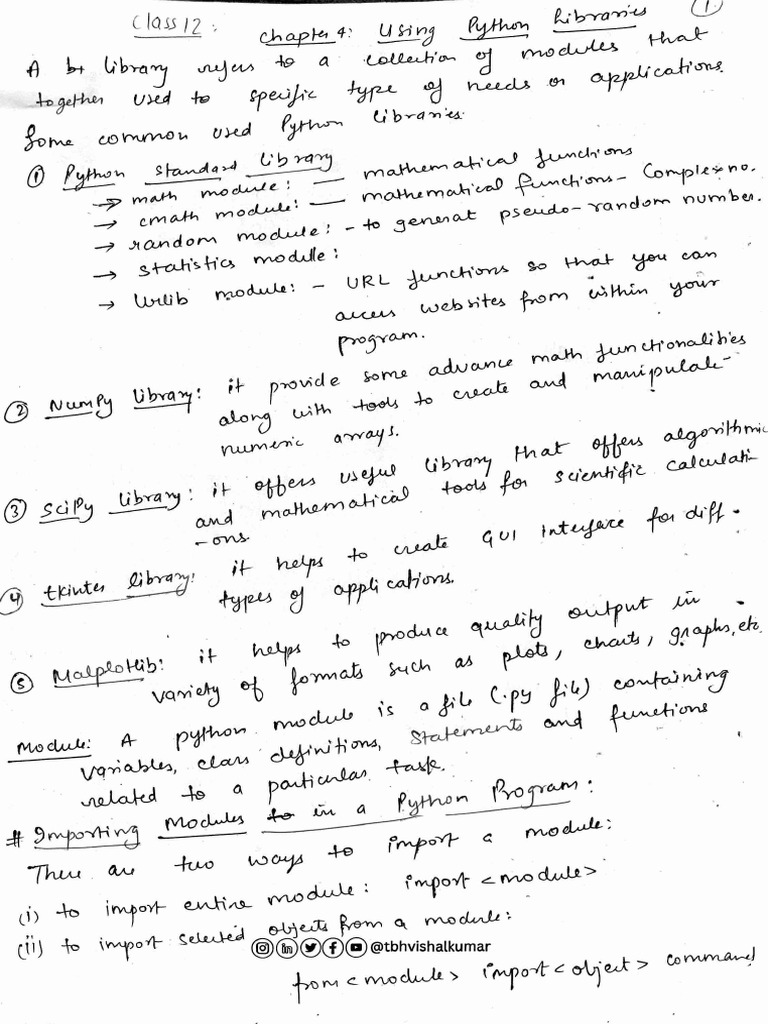 Class 12: Chapter 4: Using Python Libraries 1.
A library refers to a collection of modules that
together used to specific type of needs or applications.
Some common used Python libraries.
① Python Standard Library
→ math module: — mathematical functions
→ cmath module: — mathematical functions - Complex no.
→ random module: - to generat pseudo-random number.
→ Statistics module:
→ Urlib module: - URL functions so that you can
access websites from within your
program.
② NumPy Library: it provide some advance math functionalities
along with tools to create and manipulate
numeric arrays.
③ SciPy Library: it offers useful library that offers algorithmic
and mathematical tools for scientific calculati-
-ons.
④ tkinter library: it helps to create GUI interface for diff.
types of applications.
⑤ Malplotlib: it helps to produce quality output in
variety of formats such as plots, charts, graphs, etc.
Module: A python module is a file (.py file) containing
variables, class definitions, statements and functions
related to a particular task.
# Importing Modules to in a Python Program:
There are two ways to import a module:
(i) to import entire module: import <module>
(ii) to import selected objects from a module:
@tbhvishalkumar
from <module> import <object> command